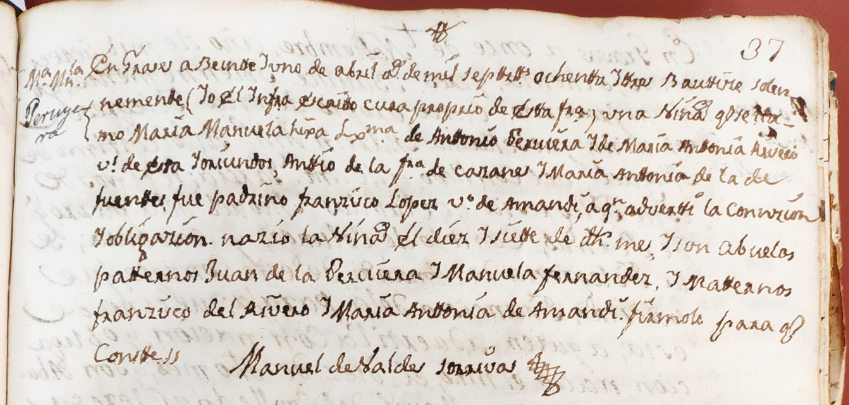 37
Mª Mnla
Peruye
ra
En Grases a Beinte Y uno de abril aº de mil septtos ochentta Y ttres Bauttize solen-
nemente, (Yo El Infra escritto cura proprio de estta fraª) una Niña qe se lla-
mo María Manuela hixa Lxma de Antonio Peruiera Y de María Antonia Riuero
vs de esta Y oriundos, Anttio de la fra de cazanes Y María Antonia de la de
fuentes, fue padrino franzisco Lopez vº de Amandi, a qn advertti la Connizion
Y obligazion. nazio la Niña El diez Y siette de dho mes, Y son abuelos
patternos Juan de la Peruiera Y Manuela fernandez, Y Matternos
franzisco del Riuero Y María Anttonia de Amandi firmolo para qe
Constte
Manuel de Valdes sorriuas